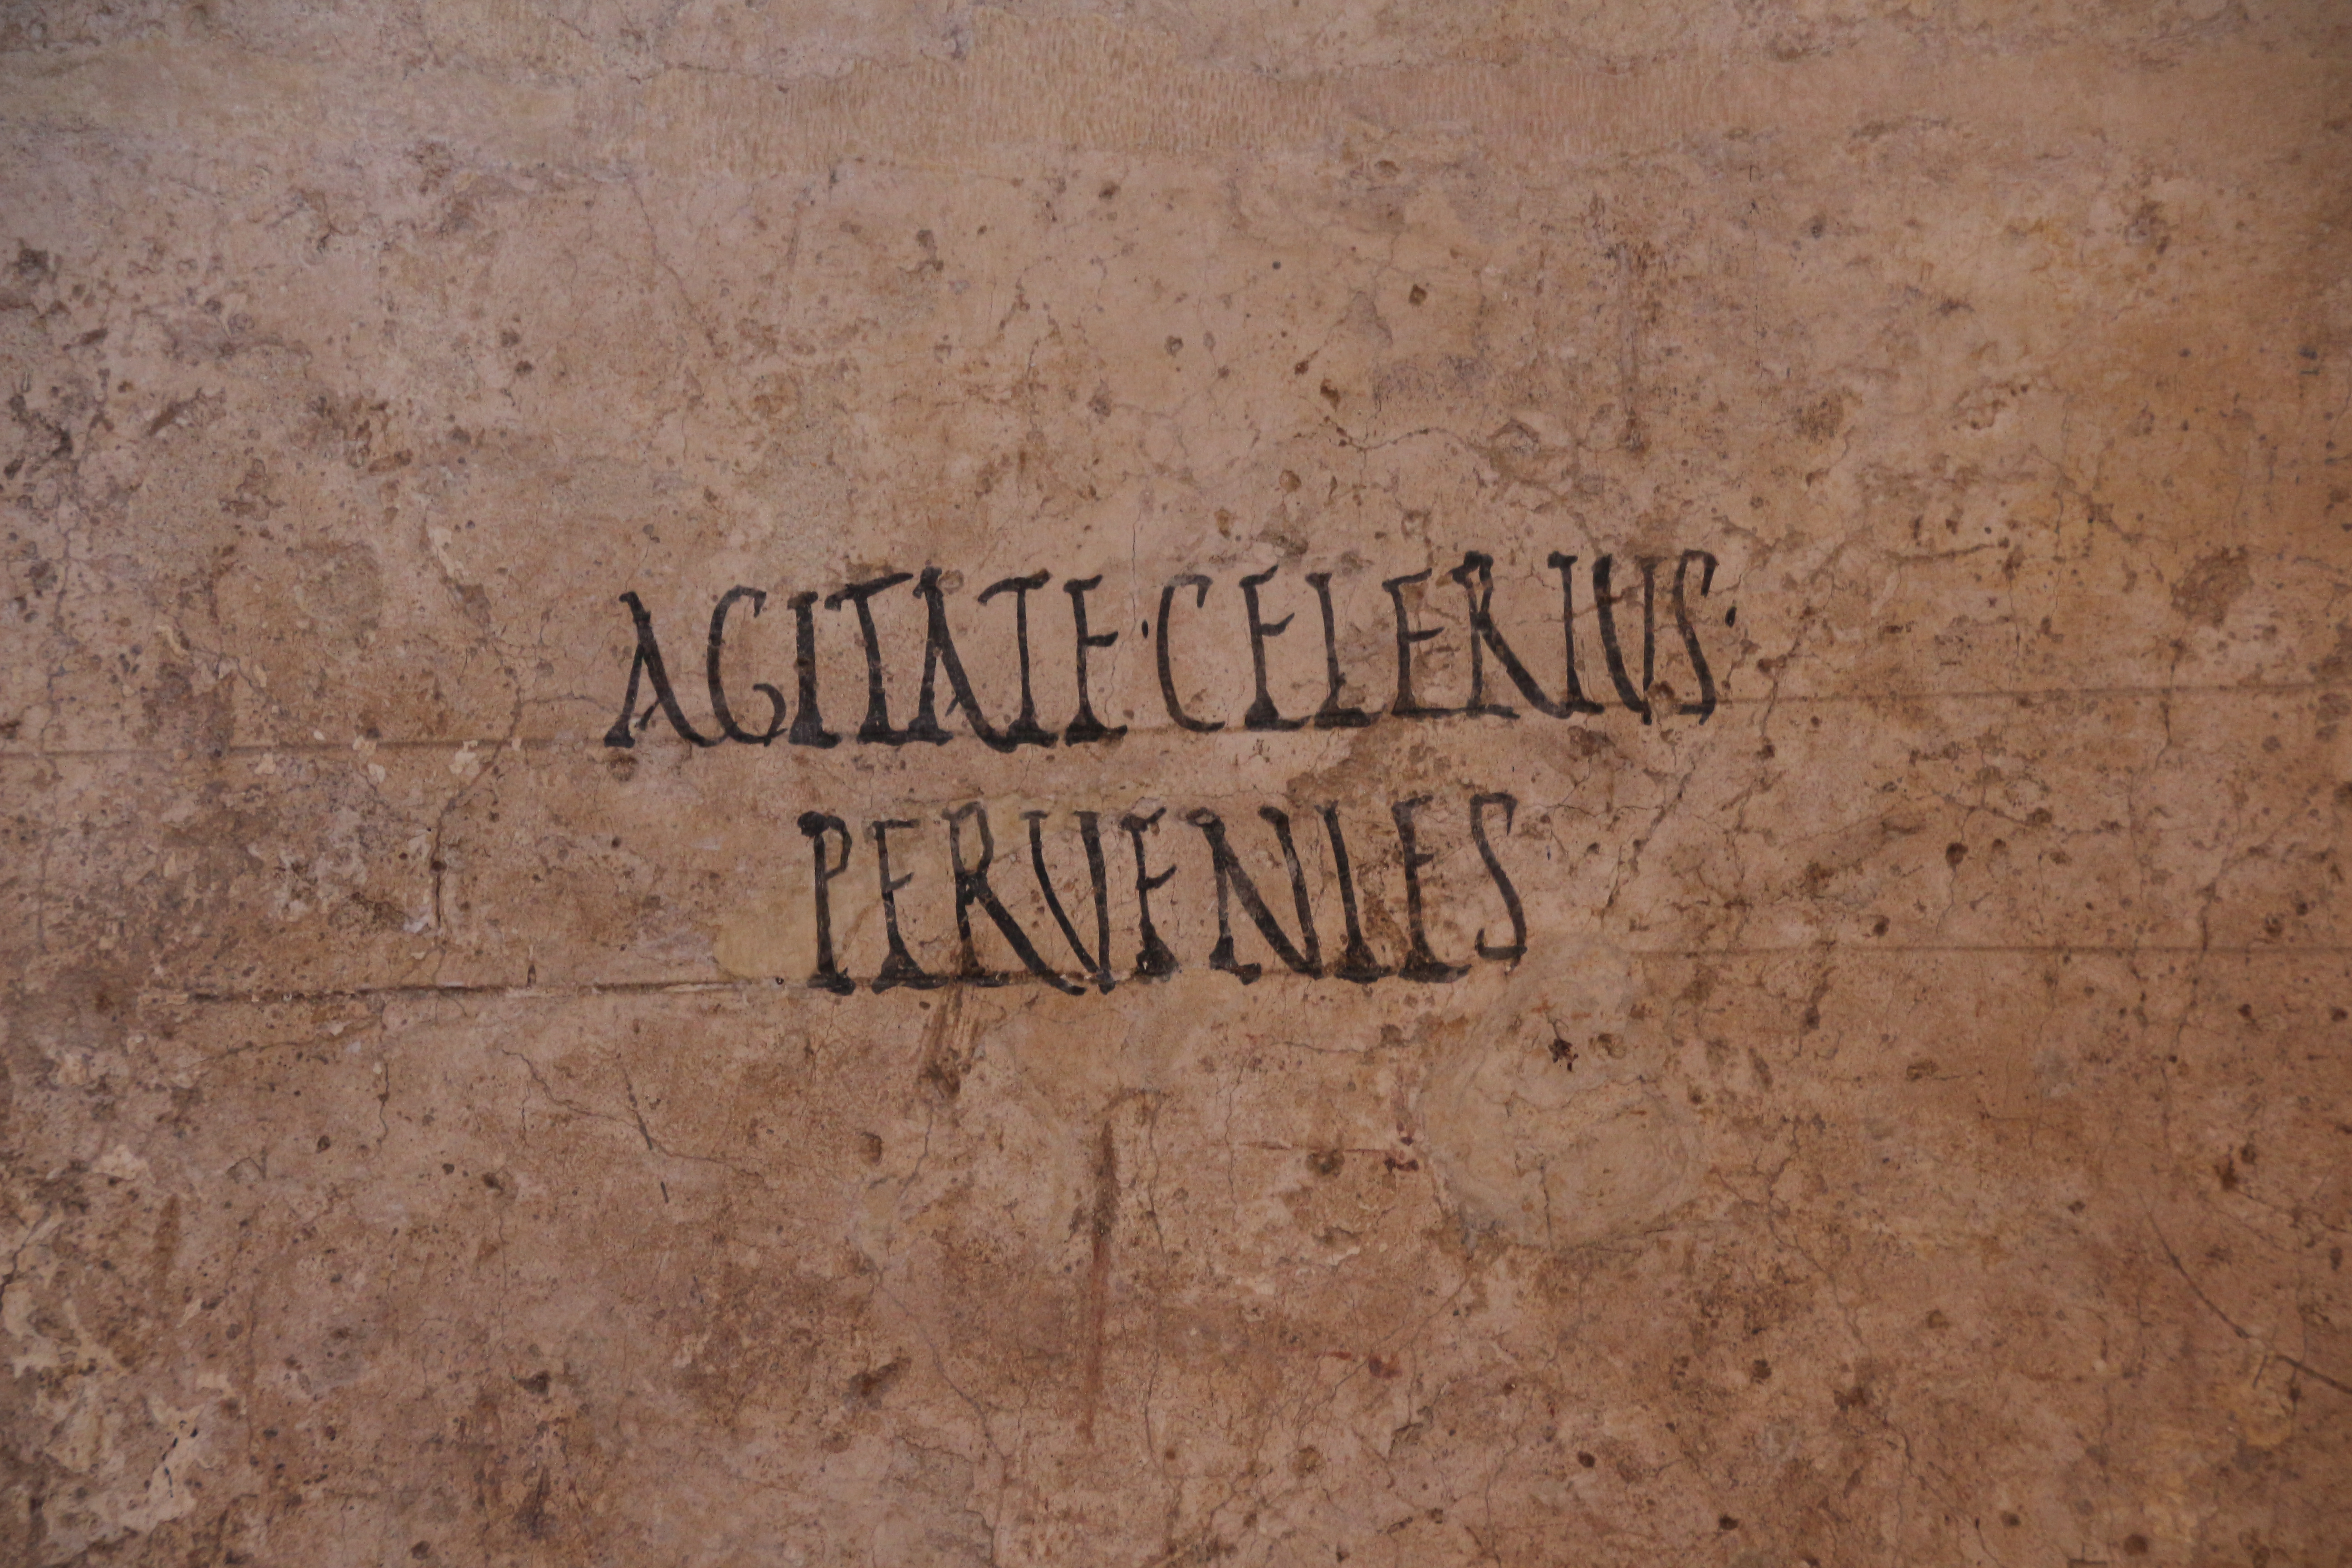 AGITATE·CELERIUS·
PERVENIES